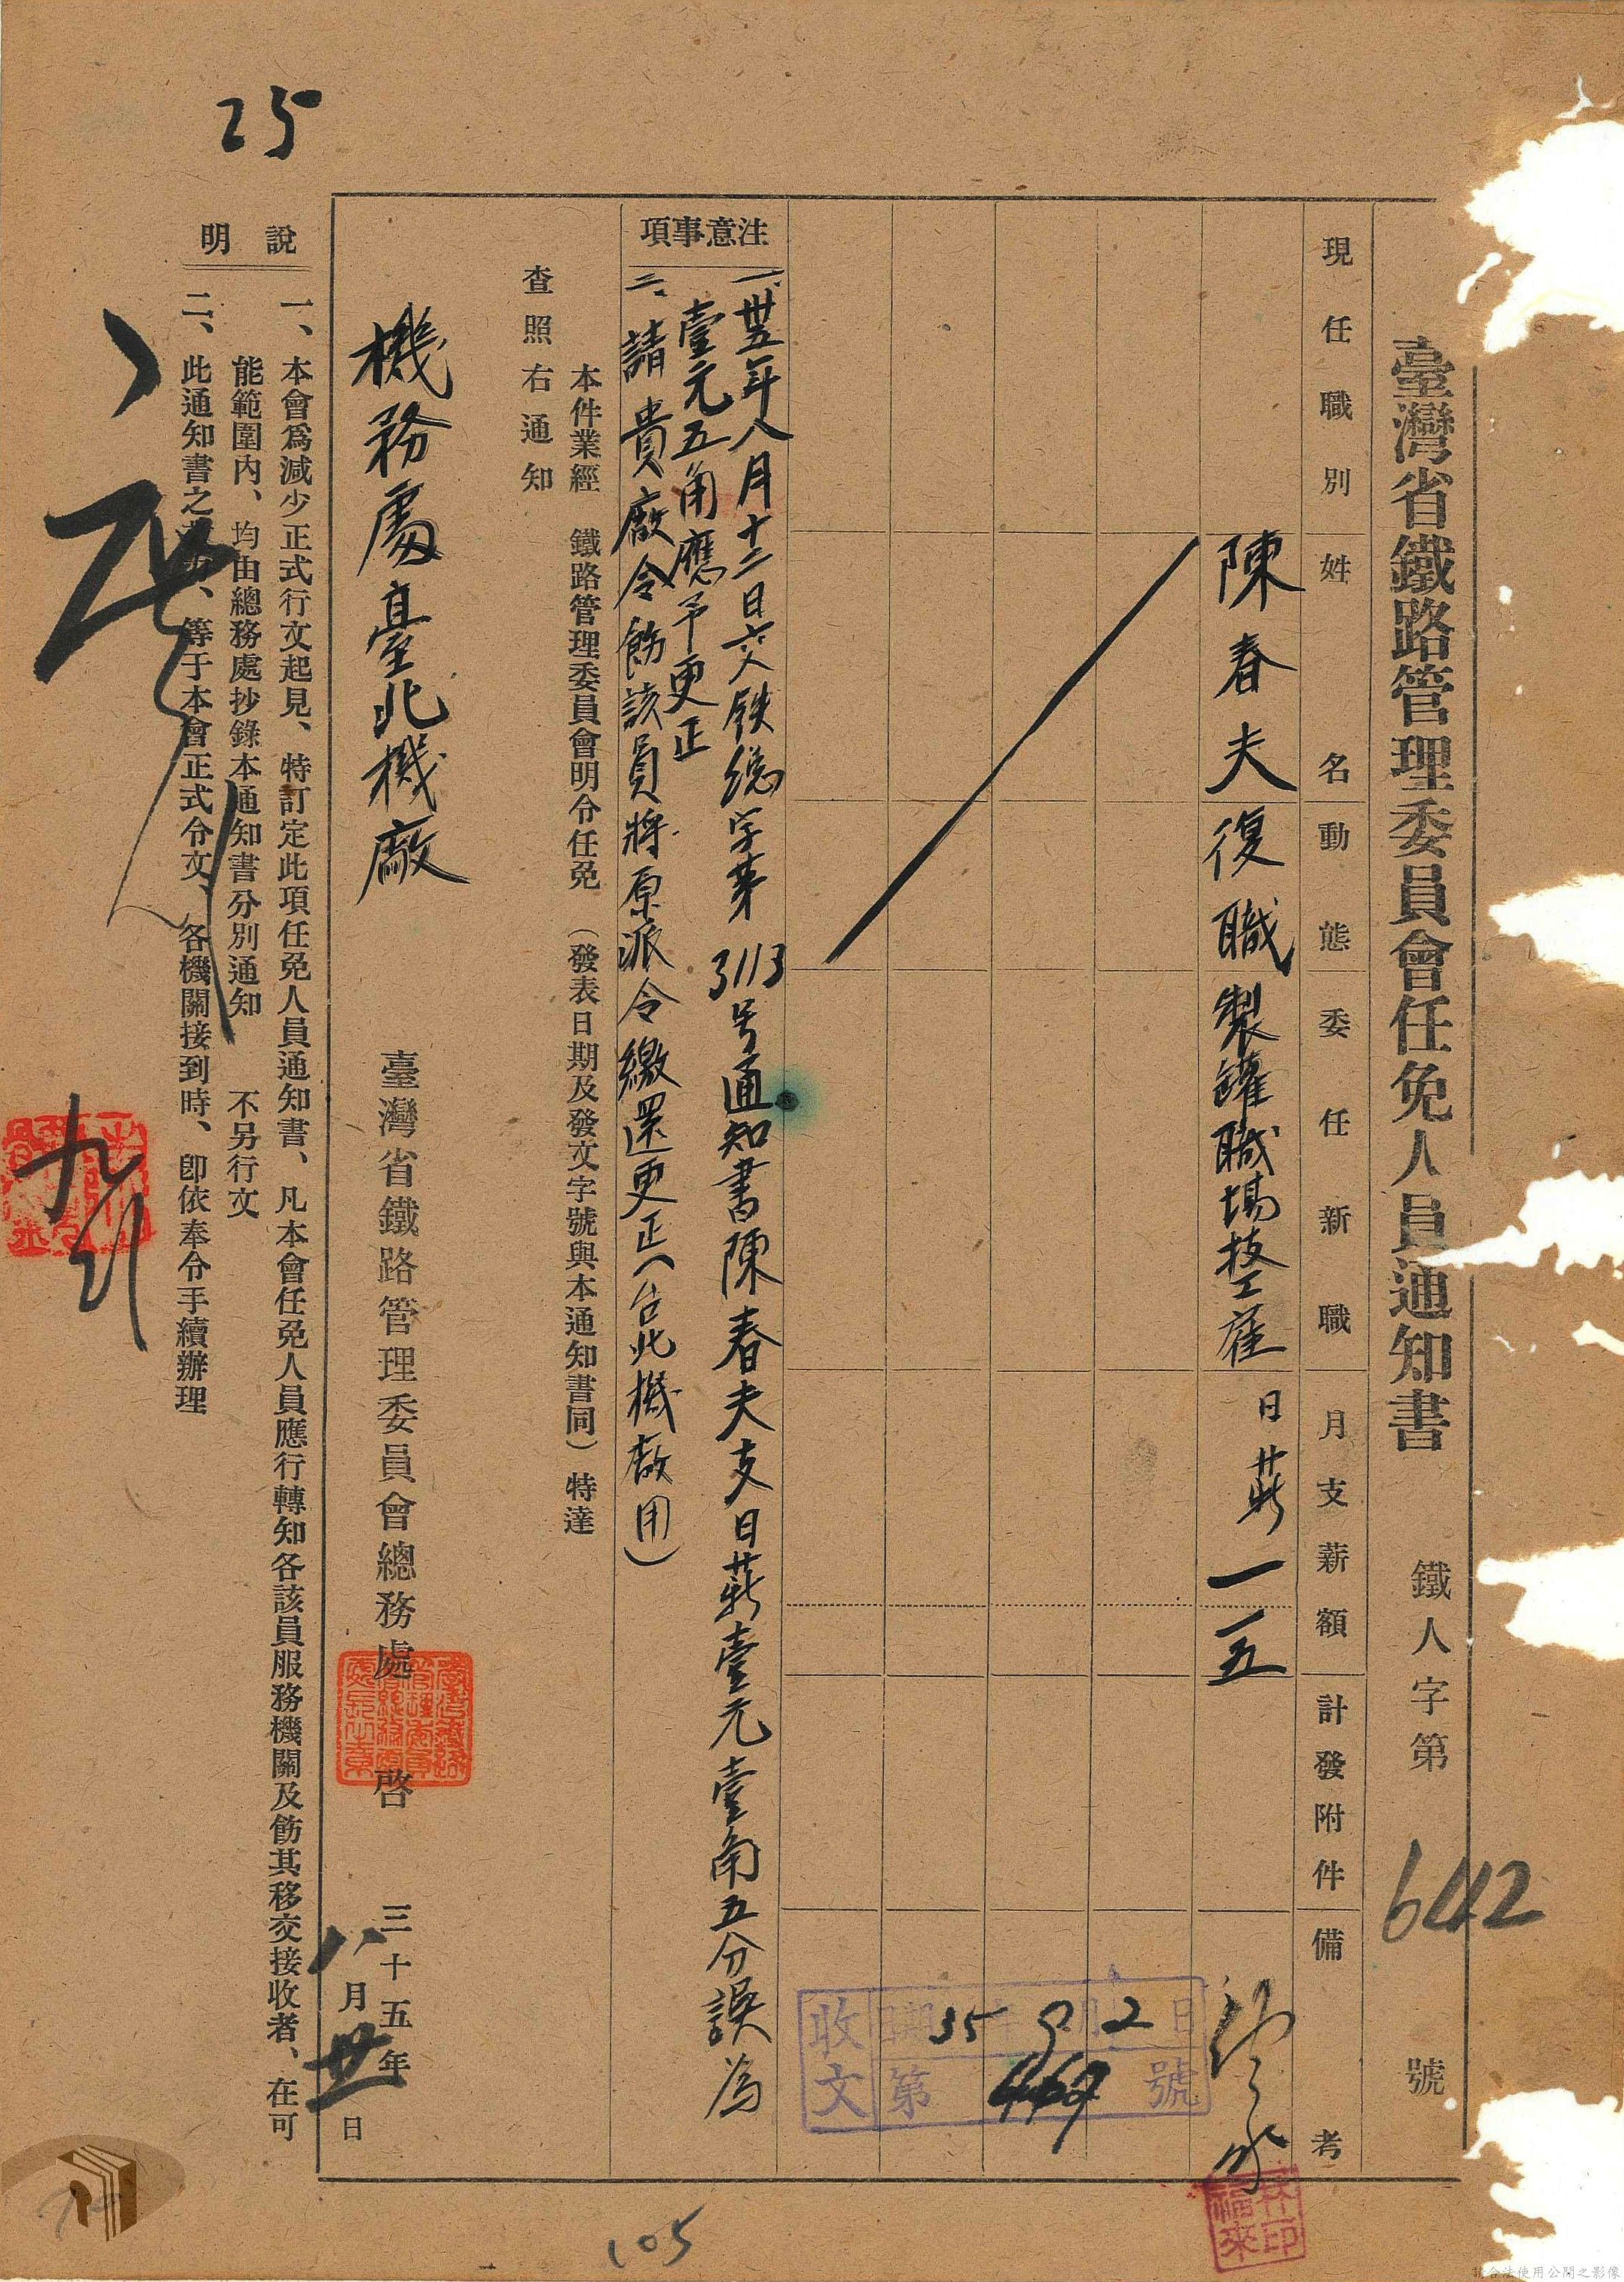 臺灣省鐵路管理委員會任免人員通知書 鐵人字第 642 號
現任職別 姓名 動態 委任新職 月支薪額 計發附件 備考
陳春夫 復職 製罐職場技工雇 日薪 一 五
收文 35 9 2 日
第 469 號
注意事項
一、卅五年八月十二日交鉄総字第3113号通知書陳春夫支日薪壹元壹角五分誤為
壹元五角應予更正
二、請貴廠令飭該員將原派令繳還更正(台北機廠用)
本件業經 鐵路管理委員會明令任免 (發表日期及發文字號與本通知書同) 特達
查照右通知
機務處臺北機廠
臺灣省鐵路管理委員會總務處 啓 三十五年
八月卅一日
說明
一、本會爲減少正式行文起見、特訂定此項任免人員通知書、凡本會任免人員應行轉知各該員服務機關及飭其移交接收者、在可
能範圍內、均由總務處抄錄本通知書分別通知 不另行文
二、此通知書之、等于本會正式令文、各機關接到時、卽依奉令手續辦理
25
105
林福來印
請合法使用公開之影像